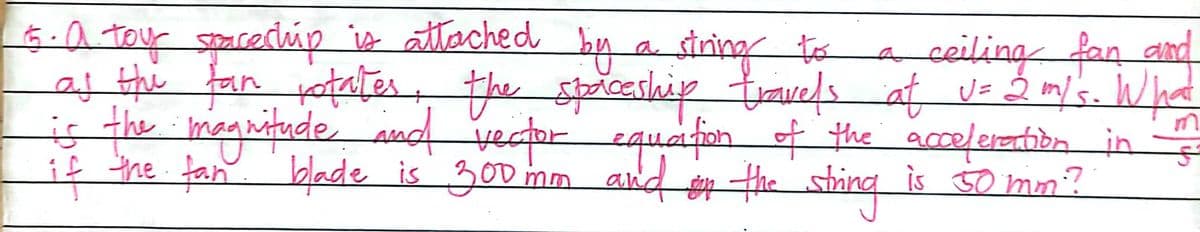 5. A toy spaceship is attached by a string to a ceiling fan and
as the fan rotates, the spaceship travels at v = 2 m/s. What
is the magnitude and vector equation of the acceleration in m/s²
if the fan. blade is 300 mm and the string is 50 mm?